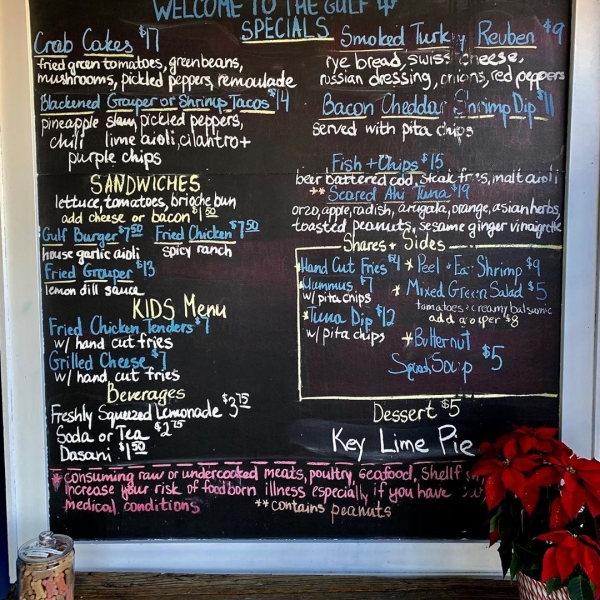 WELCOME TO THE GULF
SPECIALS
Crab Cakes $17
fried green tomatoes, greenbeans,
mushrooms, pickled peppers, remoulade
Blackened Grouper or Shrimp Tacos $14
pineapple slaw, pickled peppers,
chili lime aioli, cilantro +
purple chips
SANDWICHES
lettuce, tomatoes, brioche bun
add cheese or bacon $1.50
Gulf Burger $7.50 Fried Chicken $7.50
house garlic aioli spicy ranch
Fried Grouper $13
lemon dill sauce
KIDS Menu
Fried Chicken Tenders $7
w/ hand cut fries
Grilled Cheese $7
w/ hand cut fries
Beverages
Freshly Squeezed Lemonade $3.75
Soda or Tea $2.75
Dasani $1.50
Smoked Turkey Reuben $9
rye bread, swiss cheese,
russian dressing, onions, red peppers
Bacon Cheddar Shrimp Dip $11
served with pita chips
Fish + Chips $15
beer battered cod, steak fries, malt aioli
** Seared Ahi Tuna $19
orzo, apple, radish, arugala, orange, asian herbs,
toasted peanuts, sesame ginger vinaigrette
Shares + Sides
Hand Cut Fries $4
* Hummus $7
w/ pita chips
* Tuna Dip $12
w/ pita chips
* Peel + Eat Shrimp $9
* Mixed Green Salad $5
tomatoes + creamy balsamic
add grouper $8
* Butternut
Squash Soup $5
Dessert $5
Key Lime Pie
* consuming raw or undercooked meats, poultry, seafood,
increase your risk of foodborn illness especially if you have
medical conditions ** contains peanuts